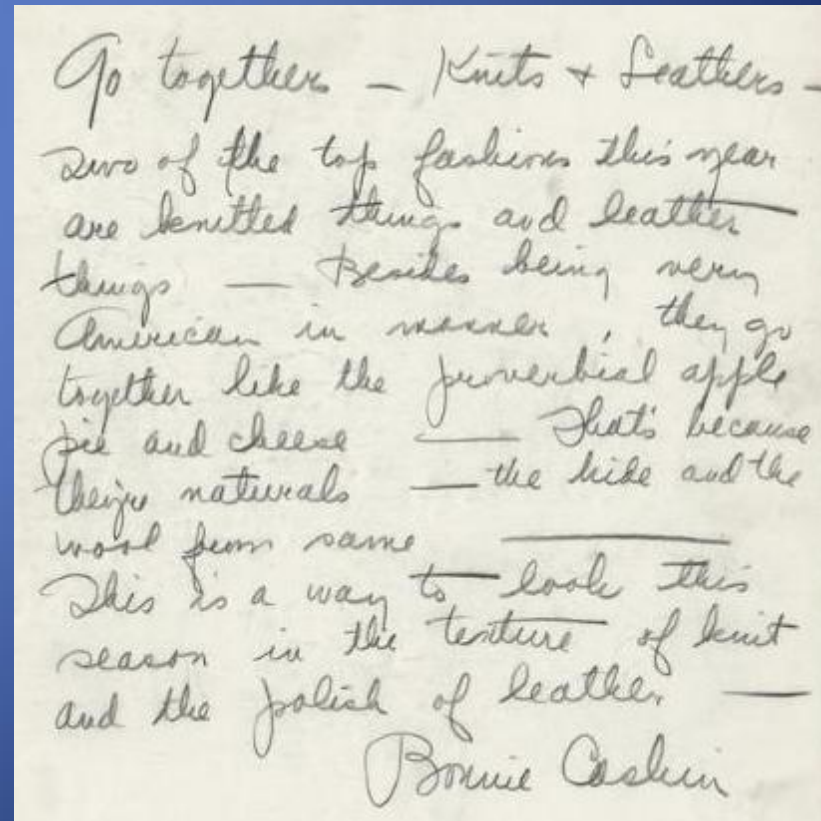 Go togethers — Knits + Leathers —
Two of the top fashions this year
are knitted things and leather
things — Besides being very
American in manner, they go
together like the proverbial apple
pie and cheese — That's because
they're naturals — the hide and the
wool from same —
This is a way to look this
season in the texture of knit
and the polish of leather —
Bonnie Cashin